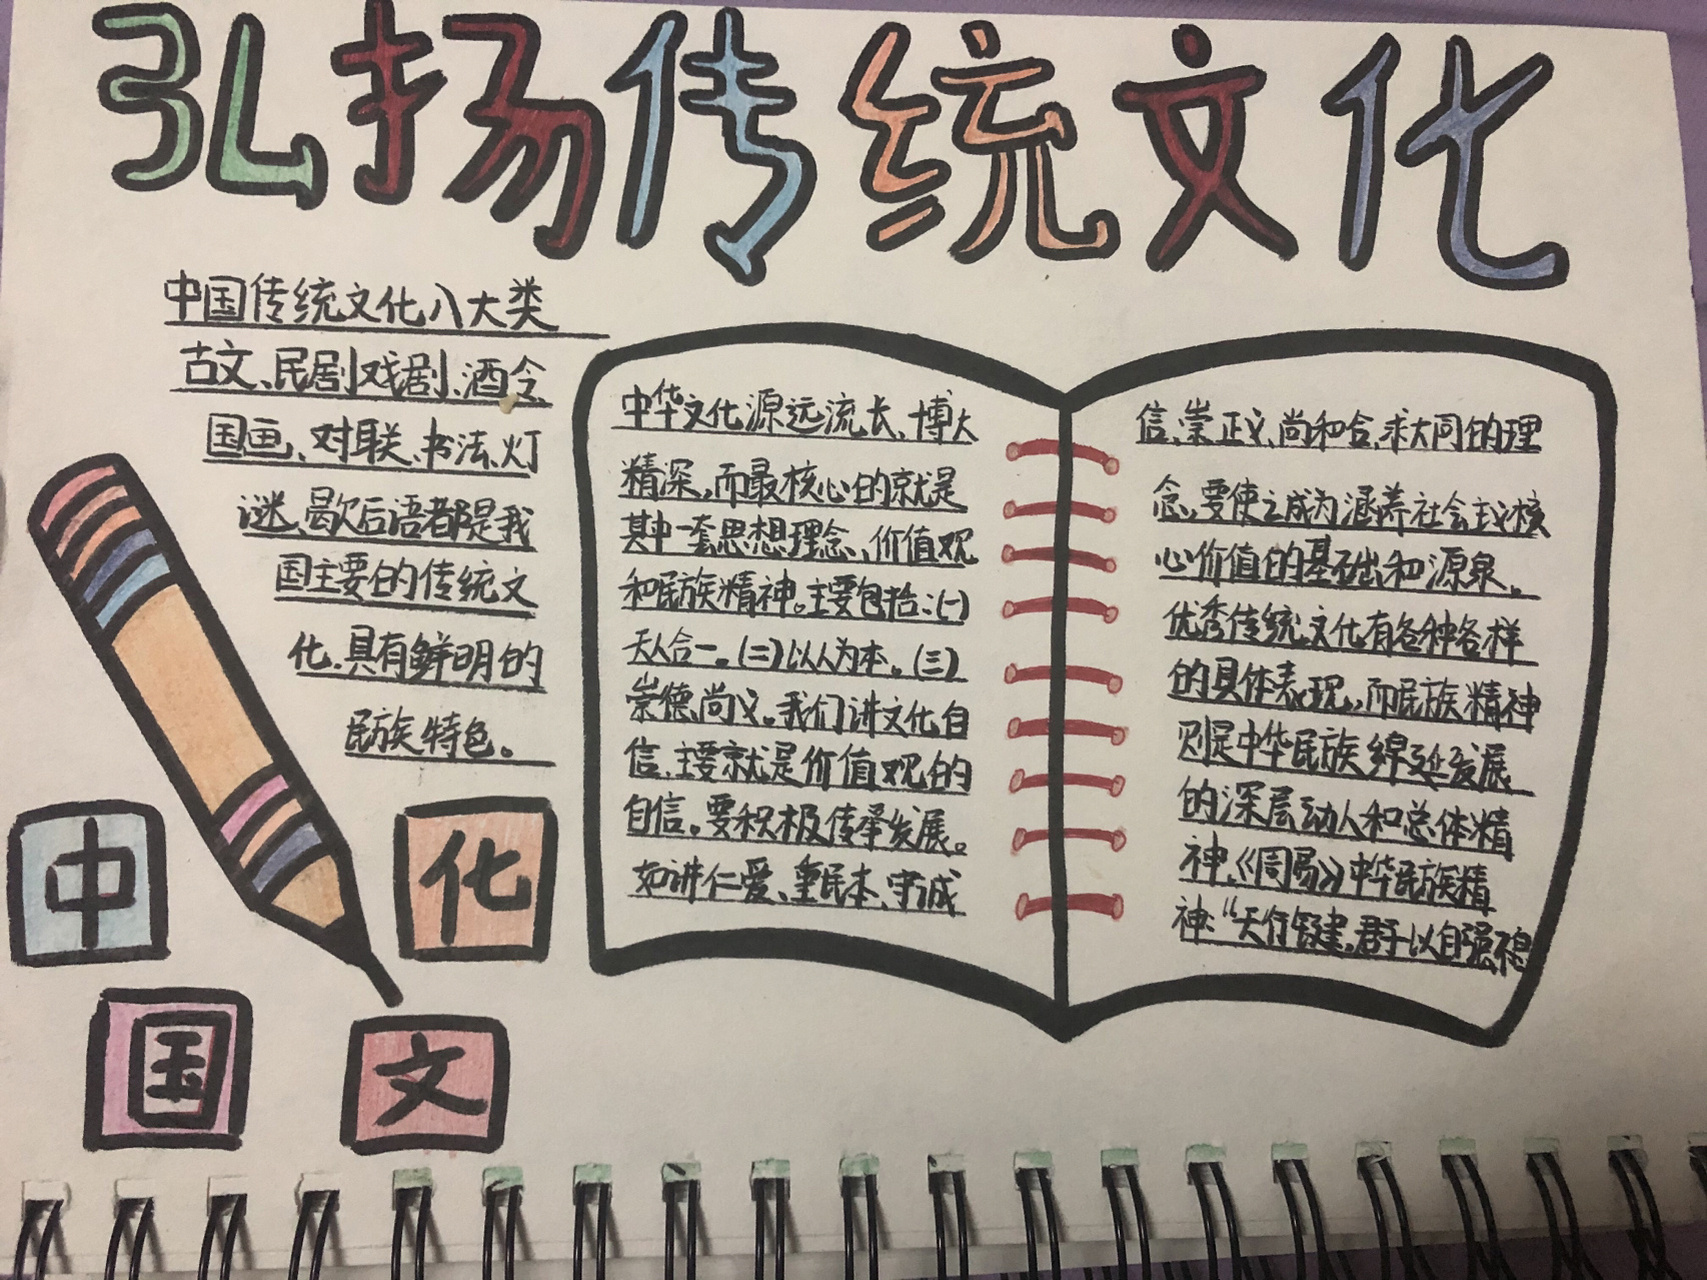 弘扬传统文化
中国传统文化八大类
古文、民剧戏剧、酒令
国画、对联、书法、灯
谜、歇后语者都是我
国主要的传统文
化.具有鲜明的
民族特色。
中华文化源远流长、博大
精深,而最核心的就是
其中一套思想理念、价值观
和民族精神。主要包括:(一)
天人合一。(二)以人为本。(三)
崇德尚义。我们讲文化自
信,主要就是价值观的
自信。要积极传承发展。
如讲仁爱、重民本、守诚
信、崇正义、尚和合、求大同的理
念,要使之成为涵养社会主义核
心价值的基础和源泉。
优秀传统文化有各种各样
的具体表现,而民族精神
则是中华民族绵延发展
的深层动人和总体精
神.《周易》中华民族精
神:“天行健,君子以自强不息
中
化
国
文